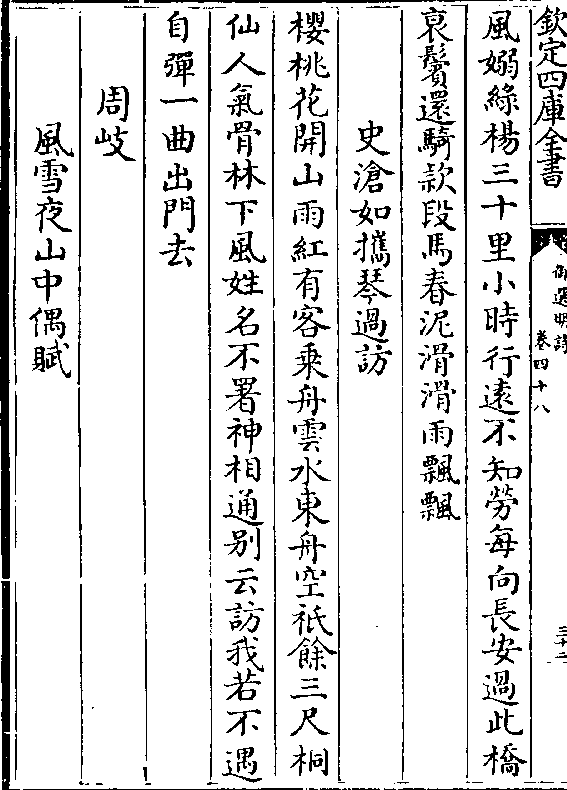 欽定四庫全書
御選明詩
卷四十八
三十二
風嫋綠楊三十里小時行遠不知勞每向長安過此橋
衰鬢還騎款段馬春泥滑滑雨飄飄
史滄如攜琴過訪
櫻桃花開山雨紅有客乘舟雲水東舟空祗餘三尺桐
仙人氣骨林下風姓名不署神相通别云訪我若不遇
自彈一曲出門去
周岐
風雪夜山中偶賦